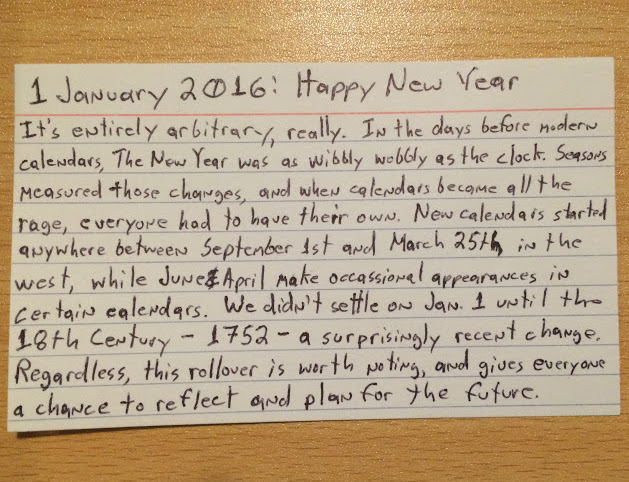 1 January 2016: Happy New Year
It's entirely arbitrary, really. In the days before modern
calendars, The New Year was as wibbly wobbly as the clock. Seasons
measured those changes, and when calendars became all the
rage, everyone had to have their own. New calendars started
anywhere between September 1st and March 25th, in the
west, while June & April make occassional appearances in
certain calendars. We didn't settle on Jan. 1 until the
18th Century - 1752 - a surprisingly recent change.
Regardless, this rollover is worth noting, and gives everyone
a chance to reflect and plan for the future.